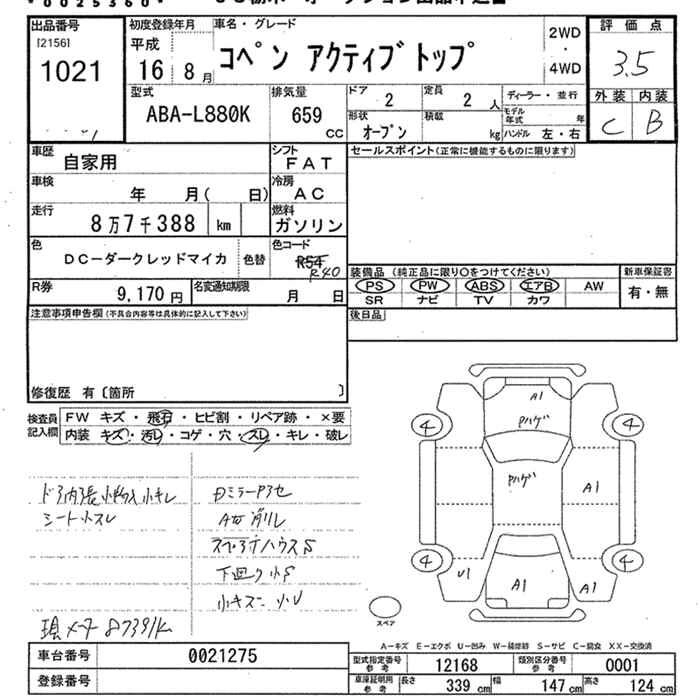 *0025360*
出品番号
[2156]
1021
初度登録年月
平成
16年 8月
車名・グレード
コペン アクティブトップ
2WD
・
4WD
評価点
3.5
外装 内装
C B
型式
ABA-L880K
排気量
659
cc
ドア
2
定員
2 人
形状
オープン
積載
kg
ディーラー・並行
モデル年式 年
ハンドル 左・右
車歴
自家用
シフト
FAT
セールスポイント(正常に機能するものに限ります)
車検
年 月( 日)
冷房
AC
走行
8万7千388 km
燃料
ガソリン
色
DC-ダークレッドマイカ
色替
色コード
R54
R40
R券
9,170 円
名変通知期限
月 日
装備品(純正品に限り○をつけてください)
PS PW ABS エアB AW
SR ナビ TV カワ
新車保証書
有・無
後日品
注意事項申告欄(不具合内容等は具体的に記入して下さい)
修復歴 有〔箇所 〕
検査員記入欄
FW キズ・飛石・ヒビ割・リペア跡・×要
内装 キズ・汚レ・コゲ・穴・スレ・キレ・破レ
シート小スレ
下回り小S
A1
Pハゲ
Pハゲ
A1
A1
A1
U1
4
4
4
4
スペア
現メータ 87391K
A-キズ E-エクボ U-凹み W-補修跡 S-サビ C-腐食 XX-交換済
車台番号
0021275
登録番号
型式指定番号
参考
12168
類別区分番号
参考
0001
車庫証明用
参考
長さ 339 cm
幅 147 cm
高さ 124 cm